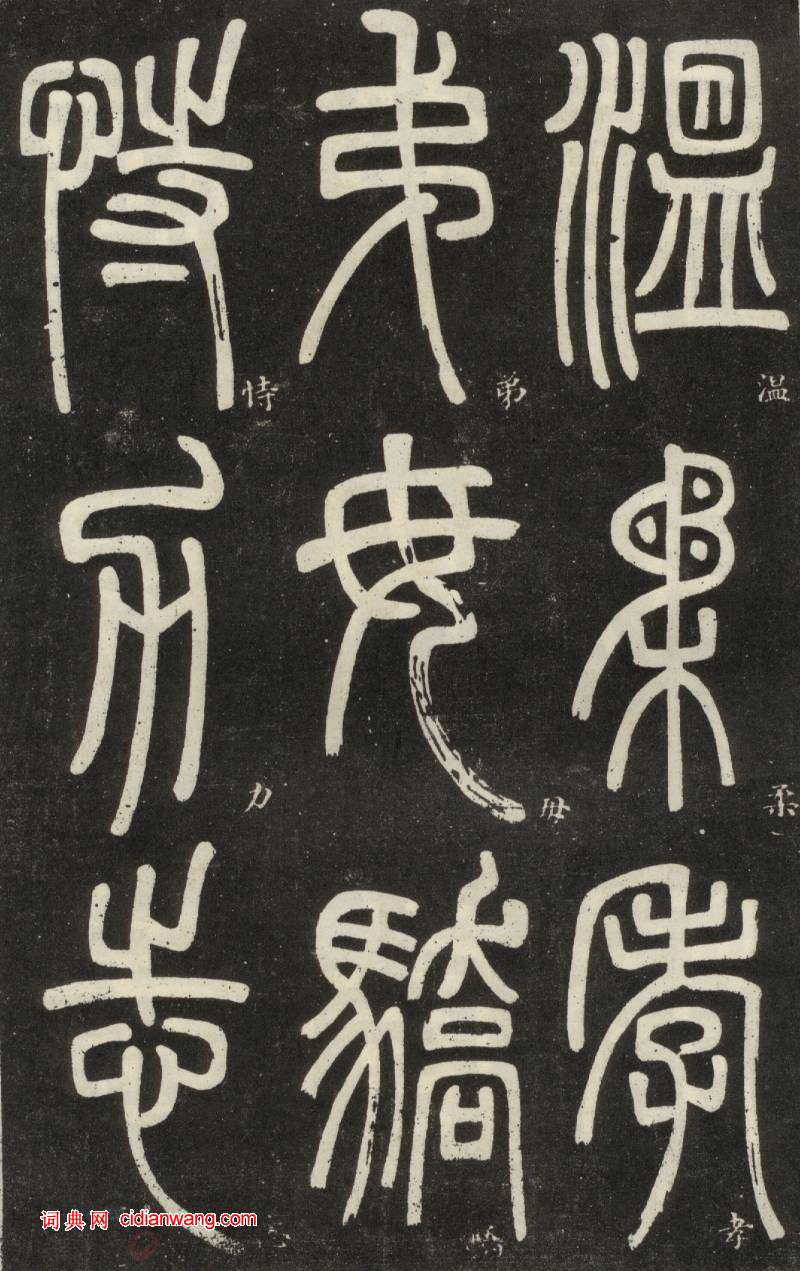 溫柔孝
弟毋驕
恃力志
温
柔
孝
弟
毋
恃
力
词典网 cidianwang.com